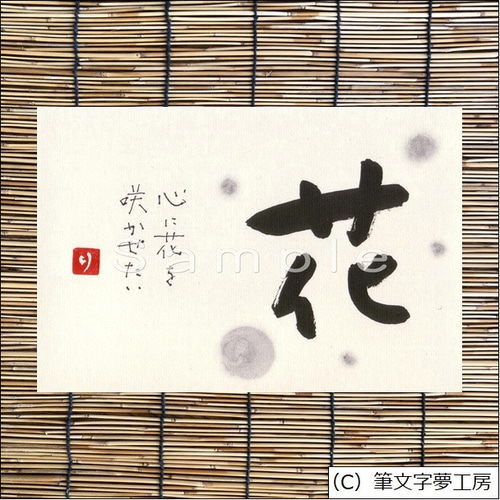 花
心に花を
咲かぜたい
り
Sample
(C) 筆文字夢工房